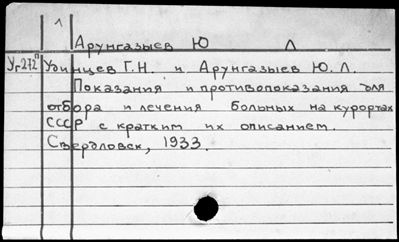 1
Арунгазыев Ю Л
Уг272п Удинцев Г.Н. и Арунгазыев Ю.Л.
Показания и противопоказания для
отбора и лечения больных на курортах
СССР с кратким их описанием.
Свердловск, 1933.